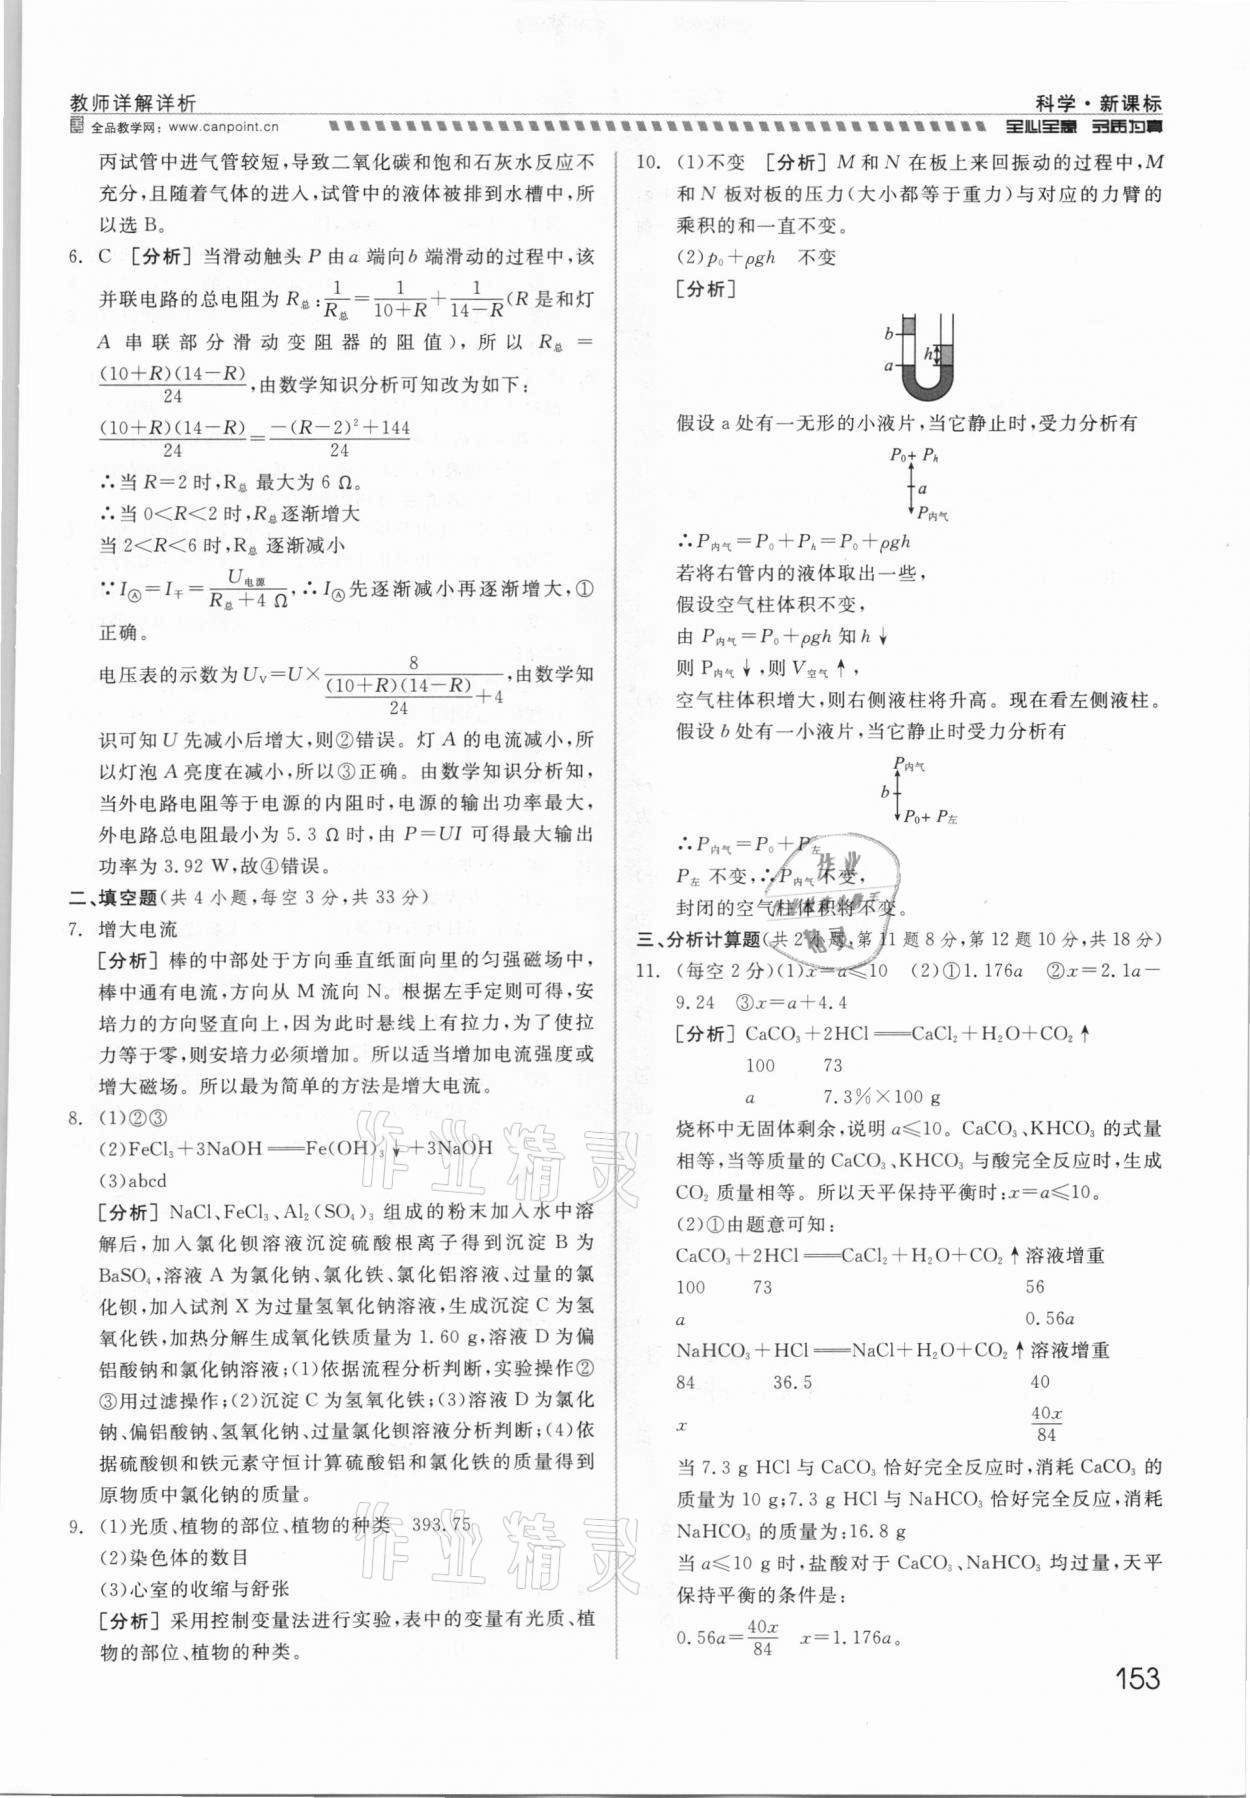 教师详解详析
全品教学网：www.canpoint.cn
科学·新课标
全心全意 名质为真
丙试管中进气管较短,导致二氧化碳和饱和石灰水反应不
充分,且随着气体的进入,试管中的液体被排到水槽中,所
以选B。
6. C [分析]当滑动触头P由a端向b端滑动的过程中,该
并联电路的总电阻为R总:1/R总=1/(10+R)+1/(14-R)(R是和灯
A串联部分滑动变阻器的阻值),所以R总=
(10+R)(14-R)/24,由数学知识分析可知改为如下:
(10+R)(14-R)/24=(-(R-2)²+144)/24
∴当R=2时,R总最大为6 Ω。
∴当0<R<2时,R总逐渐增大
当2<R<6时,R总逐渐减小
∵IⒶ=I干=U电源/(R总+4 Ω),∴IⒶ先逐渐减小再逐渐增大,①
正确。
电压表的示数为UV=U×8/((10+R)(14-R)/24+4),由数学知
识可知U先减小后增大,则②错误。灯A的电流减小,所
以灯泡A亮度在减小,所以③正确。由数学知识分析知,
当外电路电阻等于电源的内阻时,电源的输出功率最大,
外电路总电阻最小为5.3 Ω时,由P=UI可得最大输出
功率为3.92 W,故④错误。
二、填空题(共4小题,每空3分,共33分)
7. 增大电流
[分析]棒的中部处于方向垂直纸面向里的匀强磁场中,
棒中通有电流,方向从M流向N。根据左手定则可得,安
培力的方向竖直向上,因为此时悬线上有拉力,为了使拉
力等于零,则安培力必须增加。所以适当增加电流强度或
增大磁场。所以最为简单的方法是增大电流。
8. (1)②③
(2)FeCl₃+3NaOH══Fe(OH)₃↓+3NaOH
(3)abcd
[分析]NaCl、FeCl₃、Al₂(SO₄)₃组成的粉末加入水中溶
解后,加入氯化钡溶液沉淀硫酸根离子得到沉淀B为
BaSO₄,溶液A为氯化钠、氯化铁、氯化铝溶液、过量的氯
化钡,加入试剂X为过量氢氧化钠溶液,生成沉淀C为氢
氧化铁,加热分解生成氧化铁质量为1.60 g,溶液D为偏
铝酸钠和氯化钠溶液;(1)依据流程分析判断,实验操作②
③用过滤操作;(2)沉淀C为氢氧化铁;(3)溶液D为氯化
钠、偏铝酸钠、氢氧化钠、过量氯化钡溶液分析判断;(4)依
据硫酸钡和铁元素守恒计算硫酸铝和氯化铁的质量得到
原物质中氯化钠的质量。
9. (1)光质、植物的部位、植物的种类 393.75
(2)染色体的数目
(3)心室的收缩与舒张
[分析]采用控制变量法进行实验,表中的变量有光质、植
物的部位、植物的种类。
10. (1)不变 [分析]M和N在板上来回振动的过程中,M
和N板对板的压力(大小都等于重力)与对应的力臂的
乘积的和一直不变。
(2)p₀+ρgh 不变
[分析]
b
h
a
假设a处有一无形的小液片,当它静止时,受力分析有
P₀+Pₕ
a
P内气
∴P内气=P₀+Pₕ=P₀+ρgh
若将右管内的液体取出一些,
假设空气柱体积不变,
由P内气=P₀+ρgh知h↓
则P内气↓,则V空气↑,
空气柱体积增大,则右侧液柱将升高。现在看左侧液柱。
假设b处有一小液片,当它静止时受力分析有
P内气
b
P₀+P左
∴P内气=P₀+P左
P左不变,∴P内气不变,
封闭的空气柱体积将不变。
三、分析计算题(共2小题,第11题8分,第12题10分,共18分)
11. (每空2分)(1)x=a≤10 (2)①1.176a ②x=2.1a-
9.24 ③x=a+4.4
[分析]CaCO₃+2HCl══CaCl₂+H₂O+CO₂↑
100 73
a 7.3%×100 g
烧杯中无固体剩余,说明a≤10。CaCO₃、KHCO₃的式量
相等,当等质量的CaCO₃、KHCO₃与酸完全反应时,生成
CO₂质量相等。所以天平保持平衡时:x=a≤10。
(2)①由题意可知:
CaCO₃+2HCl══CaCl₂+H₂O+CO₂↑溶液增重
100 73 56
a 0.56a
NaHCO₃+HCl══NaCl+H₂O+CO₂↑溶液增重
84 36.5 40
x 40x/84
当7.3 g HCl与CaCO₃恰好完全反应时,消耗CaCO₃的
质量为10 g;7.3 g HCl与NaHCO₃恰好完全反应,消耗
NaHCO₃的质量为:16.8 g
当a≤10 g时,盐酸对于CaCO₃、NaHCO₃均过量,天平
保持平衡的条件是:
0.56a=40x/84 x=1.176a。
153
作业精灵
作业精灵
作业
精灵